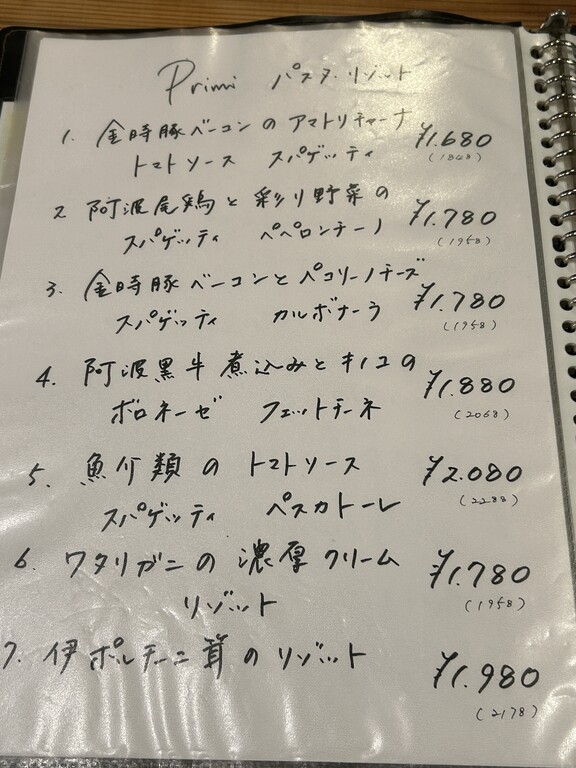 Primi パスタ・リゾット
1. 金時豚ベーコンの アマトリチャーナ ¥1.680
トマトソース スパゲッティ (1848)
2 阿波尾鶏と 彩り野菜の ¥1.780
スパゲッティ ペペロンチーノ (1958)
3. 金時豚ベーコンとペコリーノチーズ ¥1.780
スパゲッティ カルボナーラ (1958)
4. 阿波黒牛煮込みとキノコの ¥1.880
ボロネーゼ フェットチーネ (2068)
5. 魚介類の トマトソース ¥2.080
スパゲッティ ペスカトーレ (2288)
6. ワタリガニの 濃厚クリーム ¥1.780
リゾット (1958)
7. 伊ポルチーニ茸のリゾット ¥1.980
(2178)